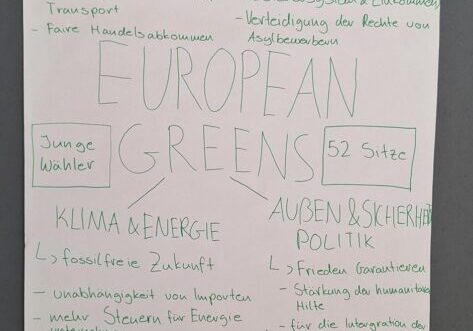 Transport
- Faire Handelsabkommen
- Verteidigung der Rechte von
Asylbewerbern
EUROPEAN
GREENS
Junge
Wähler
52 Sitze
KLIMA & ENERGIE
↳ fossilfreie Zukunft
- unabhängigkeit von Importen
- mehr Steuern für Energie
AUßEN & SICHERHEIT
POLITIK
↳ Frieden Garantieren
- Stärkung der humanitären
Hilfe
- für die Intergration der